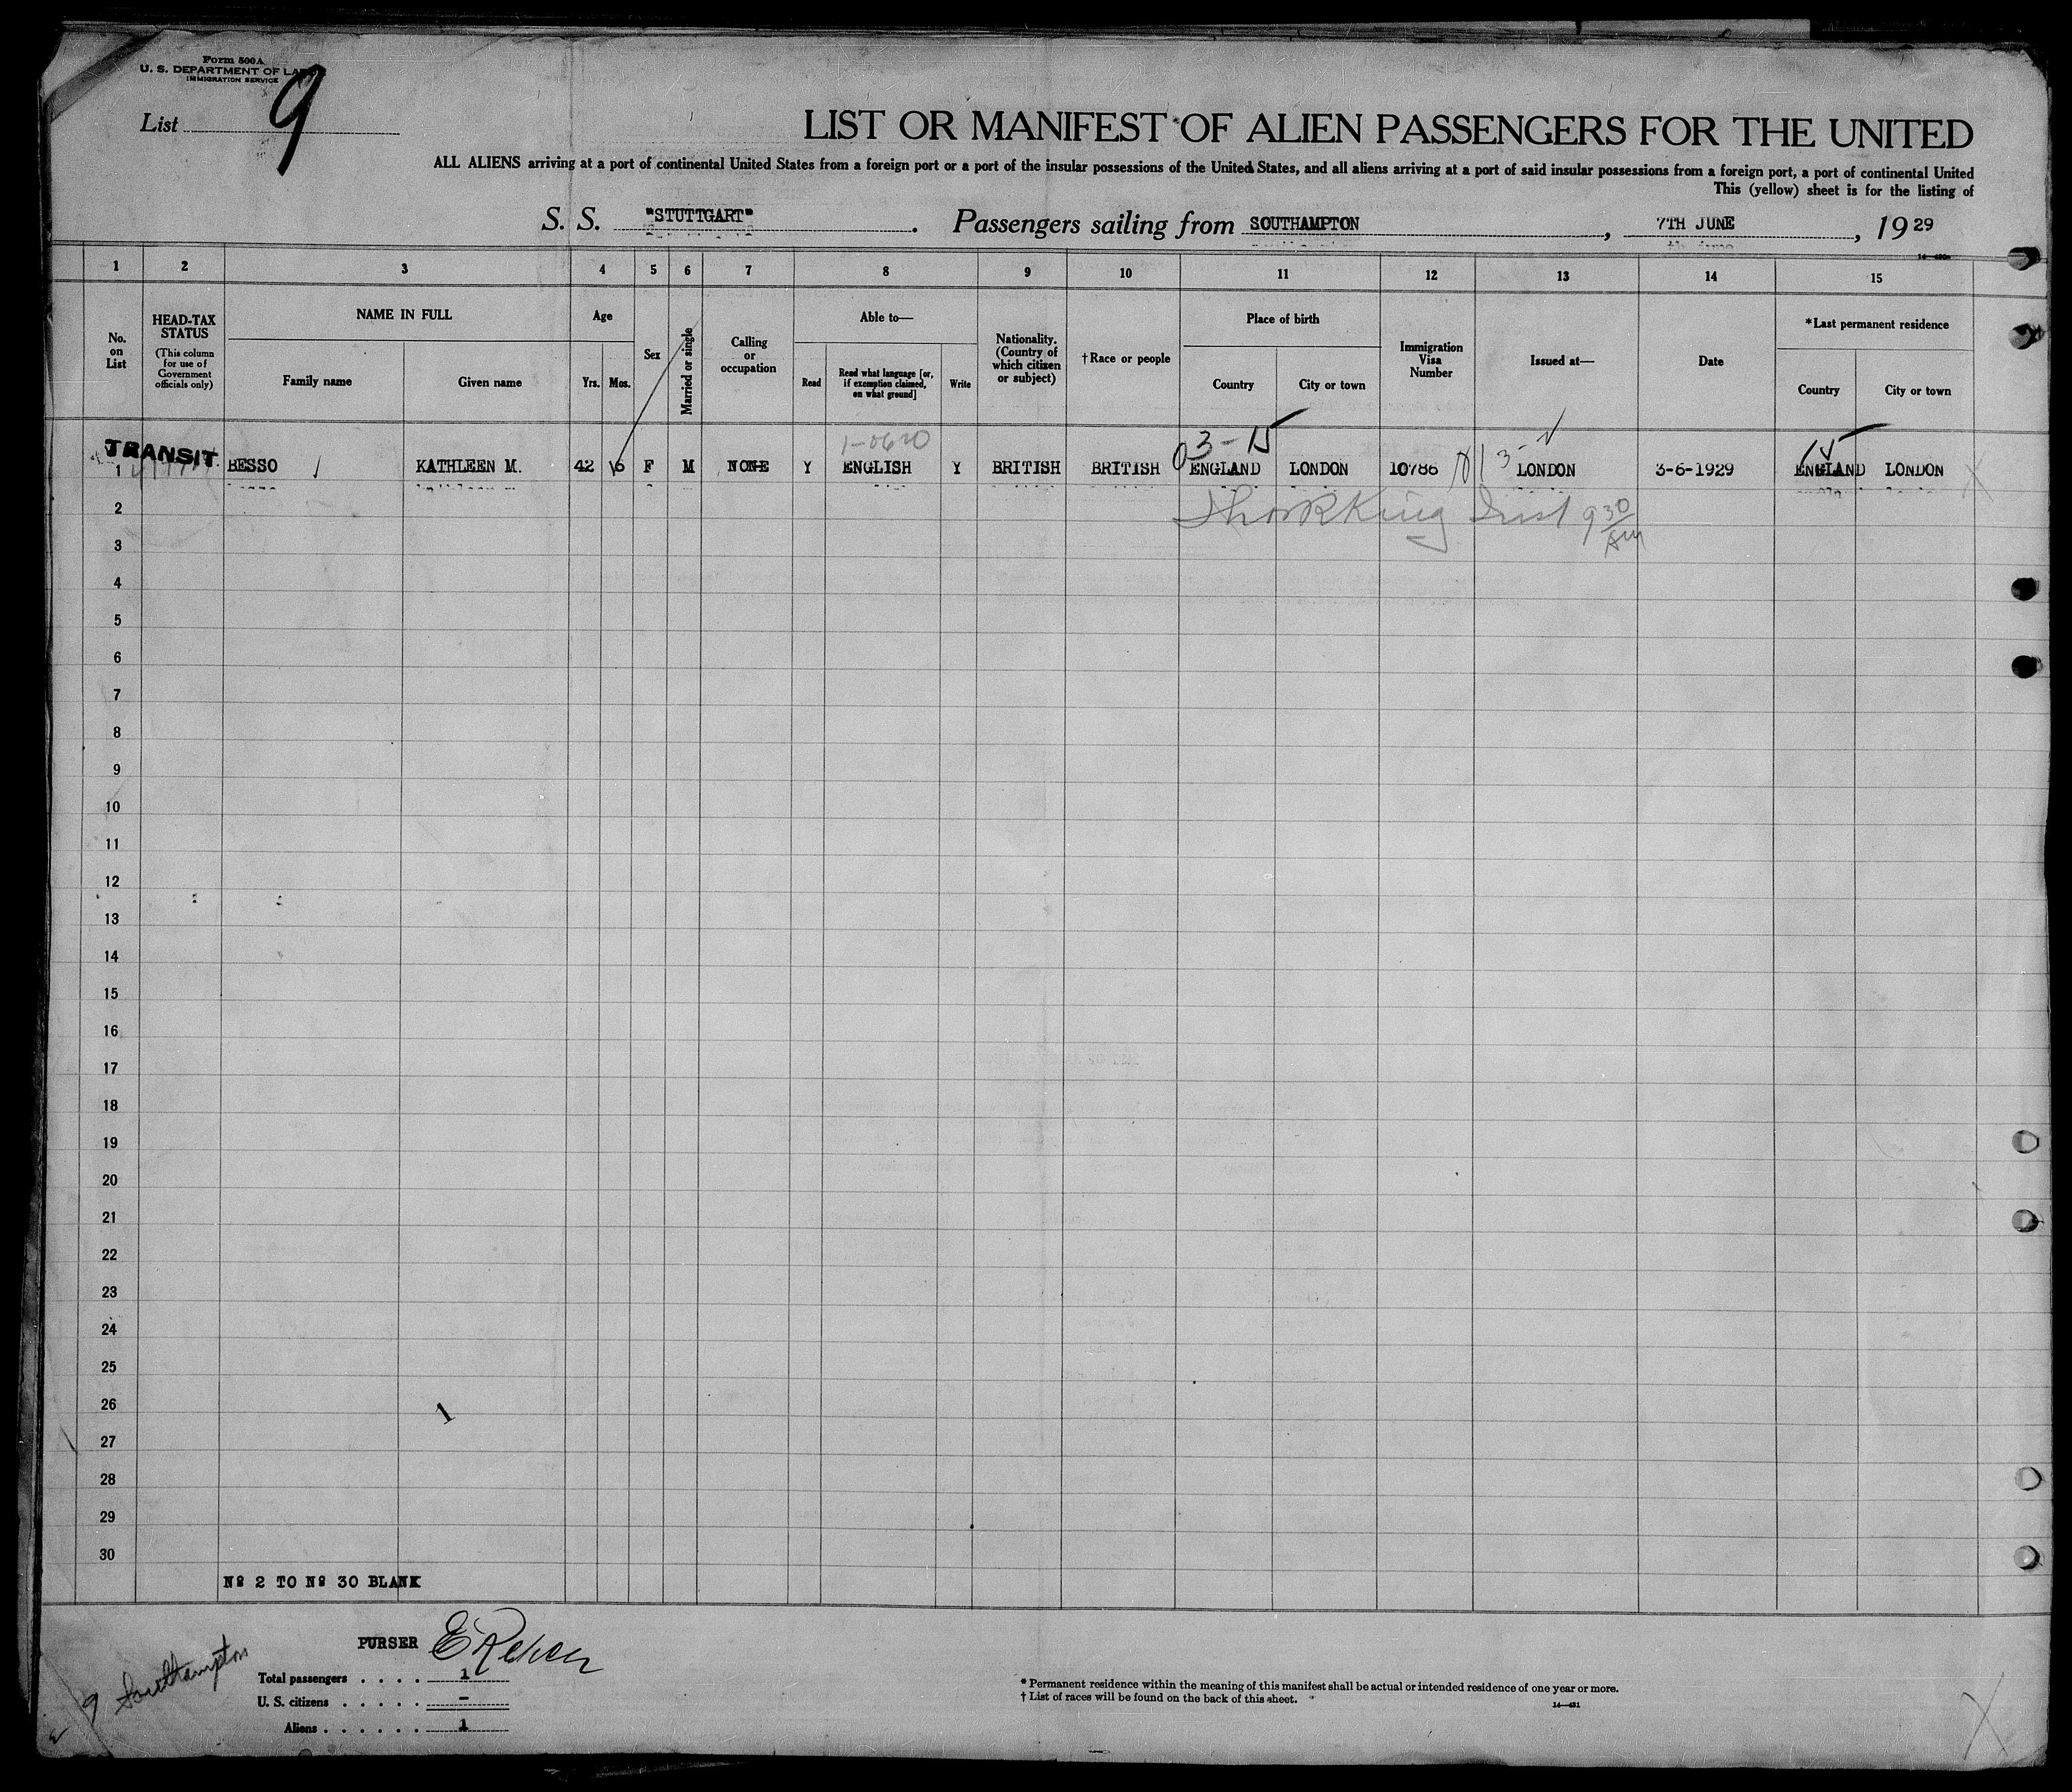 Form 500A
U. S. DEPARTMENT OF LA
IMMIGRATION SERVICE
List 9
LIST OR MANIFEST OF ALIEN PASSENGERS FOR THE UNITED
ALL ALIENS arriving at a port of continental United States from a foreign port or a port of the insular possessions of the United States, and all aliens arriving at a port of said insular possessions from a foreign port, a port of continental United
This (yellow) sheet is for the listing of
S. S. "STUTTGART". Passengers sailing from SOUTHAMPTON, 7TH JUNE, 19 29
1 2 3 4 5 6 7 8 9 10 11 12 13 14 15
No. on List
HEAD-TAX STATUS
(This column for use of Government officials only)
NAME IN FULL
Family name Given name
Age
Yrs. Mos.
Sex
Married or single
Calling or occupation
Able to—
Read
Read what language [or, if exemption claimed, on what ground]
Write
Nationality. (Country of which citizen or subject)
†Race or people
Place of birth
Country City or town
Immigration Visa Number
Issued at—
Date
*Last permanent residence
Country City or town
03-15
15
TRANSIT
1 BESSO KATHLEEN M. 42 6 F M NONE Y ENGLISH Y BRITISH BRITISH ENGLAND LONDON 10786 LONDON 3-6-1929 ENGLAND LONDON
9 30 AM
2
3
4
5
6
7
8
9
10
11
12
13
14
15
16
17
18
19
20
21
22
23
24
25
26
27
28
29
30
1
Nº 2 TO Nº 30 BLANK
PURSER
9 Southampton
Total passengers . . . . 1
U. S. citizens . . . . . –
Aliens . . . . . . 1
* Permanent residence within the meaning of this manifest shall be actual or intended residence of one year or more.
† List of races will be found on the back of this sheet.
14—481